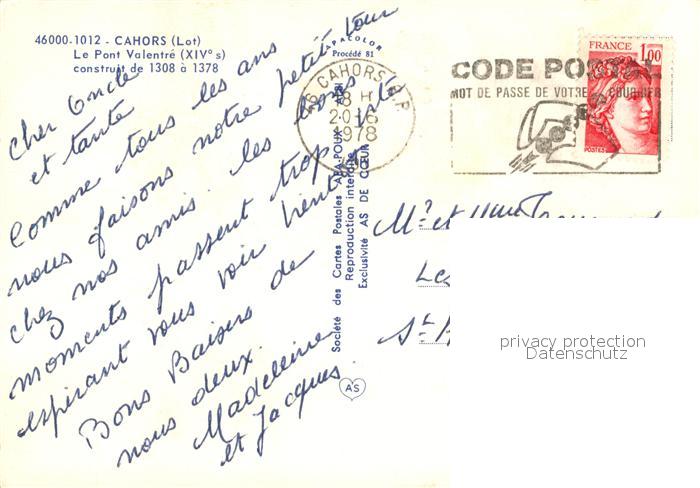 46000-1012 - CAHORS (Lot)
Le Pont Valentré (XIVe s)
construit de 1308 à 1378
APACOLOR
Procédé 81
Cher Oncle
et tante
Comme tous les ans
nous faisons notre petit tour
chez nos amis. les bons
moments passent trop vite
espérant vous voir bientôt
Bons Baisers de
nous deux.
Madeleine
et Jacques.
Société des Cartes Postales APA-POUX - ALBI
Reproduction interdite
Exclusivité AS DE CŒUR
AS
46 CAHORS R.P.
18 H
1978
CODE POSTAL
MOT DE PASSE DE VOTRE COURRIER
FRANCE 1,00
POSTES
Mr et Mme
Les
St
privacy protection
Datenschutz